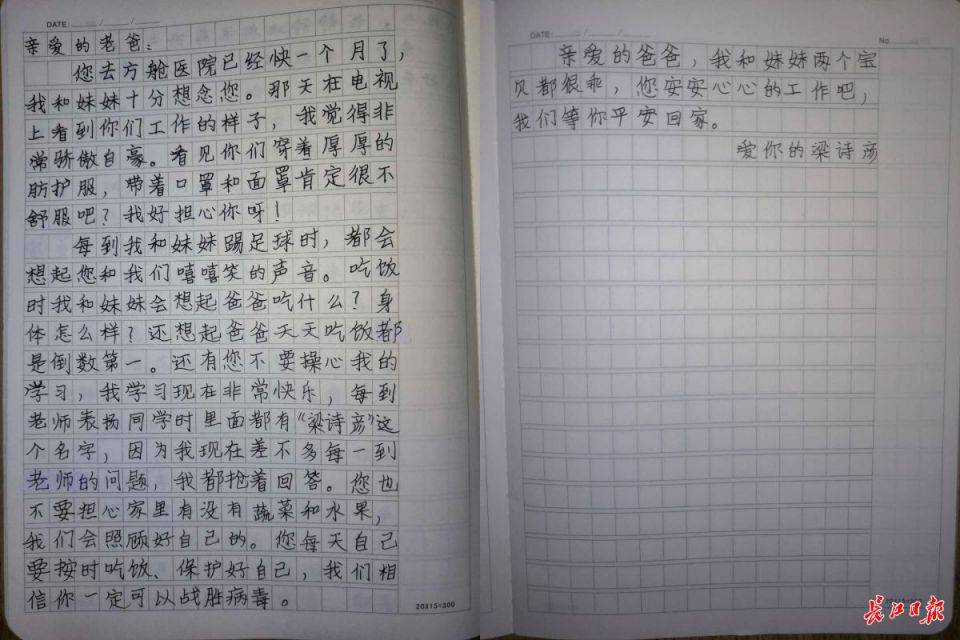 DATE: / /
亲爱的老爸：
您去方舱医院已经快一个月了，
我和妹妹十分想念您。那天在电视
上看到你们工作的样子，我觉得非
常骄傲自豪。看见你们穿着厚厚的
防护服，带着口罩和面罩肯定很不
舒服吧？我好担心你呀！
每到我和妹妹踢足球时，都会
想起您和我们嘻嘻笑的声音。吃饭
时我和妹妹会想起爸爸吃什么？身
体怎么样？还想起爸爸天天吃饭都
是倒数第一。还有您不要操心我的
学习，我学习现在非常快乐，每到
老师表扬同学时里面都有“梁诗彦”这
个名字，因为我现在差不多每一到
老师的问题，我都抢着回答。您也
不要担心家里有没有蔬菜和水果，
我们会照顾好自己的。您每天自己
要按时吃饭、保护好自己，我们相
信你一定可以战胜病毒。
20X15=300
DATE: / /
No.
亲爱的爸爸，我和妹妹两个宝
贝都很乖，您安安心心的工作吧，
我们等你平安回家。
爱你的梁诗彦
长江日报